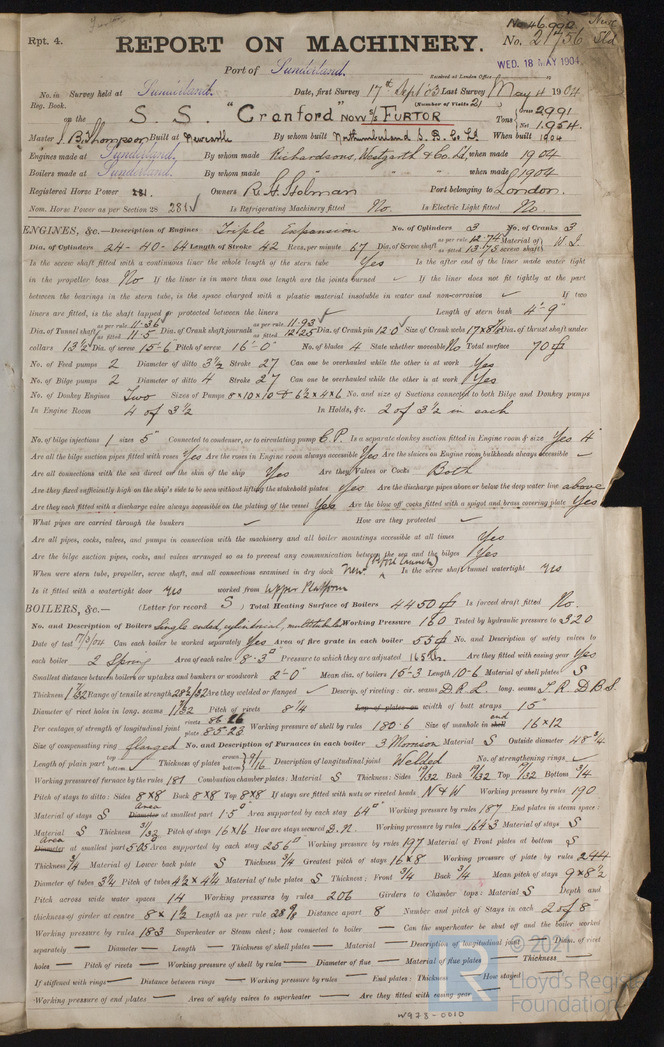 No 46.990
Rpt. 4.
REPORT ON MACHINERY.
No. 21756 Sld
Port of Sunderland.
Received at London Office
WED. 18 MAY 1904
No. in Survey held at Sunderland. Date, first Survey 17th Sept 03 Last Survey May 4 1904
Reg. Book.
(Number of Visits 21)
on the S. S. "Cranford" NOW S/S FURTOR Tons Gross 2991
Net 1.954.
Master B. Thompson Built at Newcastle By whom built Northumberland S. B. Co Ld When built 1904
Engines made at Sunderland. By whom made Richardsons, Westgarth & Co. Ld, when made 1904
Boilers made at Sunderland. By whom made " " when made 1904
Registered Horse Power 281. Owners R. H. Holman Port belonging to London.
Nom. Horse Power as per Section 28 281 Is Refrigerating Machinery fitted No. Is Electric Light fitted No
ENGINES, &c.—Description of Engines Triple Expansion No. of Cylinders 3 No. of Cranks 3
Dia. of Cylinders 24-40-64 Length of Stroke 42 Revs. per minute 67 Dia. of Screw shaft as per rule 12.745 as fitted 13.75 Material of screw shaft W. I.
Is the screw shaft fitted with a continuous liner the whole length of the stern tube Yes Is the after end of the liner made water tight
in the propeller boss No If the liner is in more than one length are the joints burned ✓ If the liner does not fit tightly at the part
between the bearings in the stern tube, is the space charged with a plastic material insoluble in water and non-corrosive ✓ If two
liners are fitted, is the shaft lapped or protected between the liners ✓ Length of stern bush 4'-9"
Dia. of Tunnel shaft as per rule 11.36 as fitted 11.5 Dia. of Crank shaft journals as per rule 11.93 as fitted 12.25 Dia. of Crank pin 12.0 Size of Crank webs 17x8⅛ Dia. of thrust shaft under
collars 13½ Dia. of screw 15-6 Pitch of screw 16'-0" No. of blades 4 State whether moveable No Total surface 70
No. of Feed pumps 2 Diameter of ditto 3½ Stroke 27 Can one be overhauled while the other is at work Yes
No. of Bilge pumps 2 Diameter of ditto 4 Stroke 27 Can one be overhauled while the other is at work Yes
No. of Donkey Engines Two Sizes of Pumps 8x10x10 & 6½x4x6 No. and size of Suctions connected to both Bilge and Donkey pumps
In Engine Room 4 of 3½ In Holds, &c. 2 of 3½ in each
No. of bilge injections 1 sizes 5" Connected to condenser, or to circulating pump C.P. Is a separate donkey suction fitted in Engine room & size Yes 4"
Are all the bilge suction pipes fitted with roses Yes Are the roses in Engine room always accessible Yes Are the sluices on Engine room bulkheads always accessible ✓
Are all connections with the sea direct on the skin of the ship Yes Are they Valves or Cocks Both
Are they fixed sufficiently high on the ship's side to be seen without lifting the stokehold plates Yes Are the discharge pipes above or below the deep water line above
Are they each fitted with a discharge valve always accessible on the plating of the vessel Yes Are the blow off cocks fitted with a spigot and brass covering plate Yes
What pipes are carried through the bunkers ✓ How are they protected ✓
Are all pipes, cocks, valves, and pumps in connection with the machinery and all boiler mountings accessible at all times Yes
Are the bilge suction pipes, cocks, and valves arranged so as to prevent any communication between the sea and the bilges Yes
When were stern tube, propeller, screw shaft, and all connections examined in dry dock New (Before launch) Is the screw shaft tunnel watertight Yes
Is it fitted with a watertight door Yes worked from Upper Platform
BOILERS, &c.— (Letter for record S) Total Heating Surface of Boilers 4450 Is forced draft fitted No.
No. and Description of Boilers Single ended, cylindrical, multitubular Working Pressure 160 Tested by hydraulic pressure to 320
Date of test 17/3/04 Can each boiler be worked separately Yes Area of fire grate in each boiler 55 No. and Description of safety valves to
each boiler 2 Spring Area of each valve 8.3" Pressure to which they are adjusted 165 lbs. Are they fitted with easing gear Yes
Smallest distance between boilers or uptakes and bunkers or woodwork 2'-0" Mean dia. of boilers 15-3 Length 10-6 Material of shell plates S
Thickness 1 7/32 Range of tensile strength 28½/32 Are they welded or flanged ✓ Descrip. of riveting: cir. seams D.R.L. long. seams T.R.D.B.S.
Diameter of rivet holes in long. seams 1 7/32 Pitch of rivets 8¼ Lap of plates or width of butt straps 15"
Per centages of strength of longitudinal joint rivets 86.26 plate 85.23 Working pressure of shell by rules 180.6 Size of manhole in end shell 16x12
Size of compensating ring flanged No. and Description of Furnaces in each boiler 3 Morrison Material S Outside diameter 48¾
Length of plain part top bottom Thickness of plates crown bottom 9/16 Description of longitudinal joint Welded No. of strengthening rings ✓
Working pressure of furnace by the rules 181 Combustion chamber plates: Material S Thickness: Sides 19/32 Back 19/32 Top 19/32 Bottom ¾
Pitch of stays to ditto: Sides 8x8 Back 8x8 Top 8x8 If stays are fitted with nuts or riveted heads N & W Working pressure by rules 190
Material of stays S Area Diameter at smallest part 1.5" Area supported by each stay 64" Working pressure by rules 187 End plates in steam space:
Material S Thickness 31/32 Pitch of stays 16x16 How are stays secured D.N. Working pressure by rules 164.3 Material of stays S
Area Diameter at smallest part 5.05 Area supported by each stay 256" Working pressure by rules 197 Material of Front plates at bottom S
Thickness ¾ Material of Lower back plate S Thickness ¾ Greatest pitch of stays 16x8 Working pressure of plate by rules 244
Diameter of tubes 3¼ Pitch of tubes 4½x4¼ Material of tube plates S Thickness: Front ¾ Back ¾ Mean pitch of stays 9x8½
Pitch across wide water spaces 14 Working pressures by rules 206 Girders to Chamber tops: Material S Depth and
thickness of girder at centre 8x1½ Length as per rule 28⅞ Distance apart 8 Number and pitch of Stays in each 2 of 8"
Working pressure by rules 183 Superheater or Steam chest; how connected to boiler — Can the superheater be shut off and the boiler worked
separately — Diameter — Length — Thickness of shell plates — Material — Description of longitudinal joint — Diam. of rivet
holes — Pitch of rivets — Working pressure of shell by rules — Diameter of flue — Material of flue plates — Thickness —
If stiffened with rings — Distance between rings — Working pressure by rules — End plates: Thickness — How stayed —
Working pressure of end plates — Area of safety valves to superheater — Are they fitted with easing gear —
© 2021
Lloyd's Register
Foundation
W978-0010